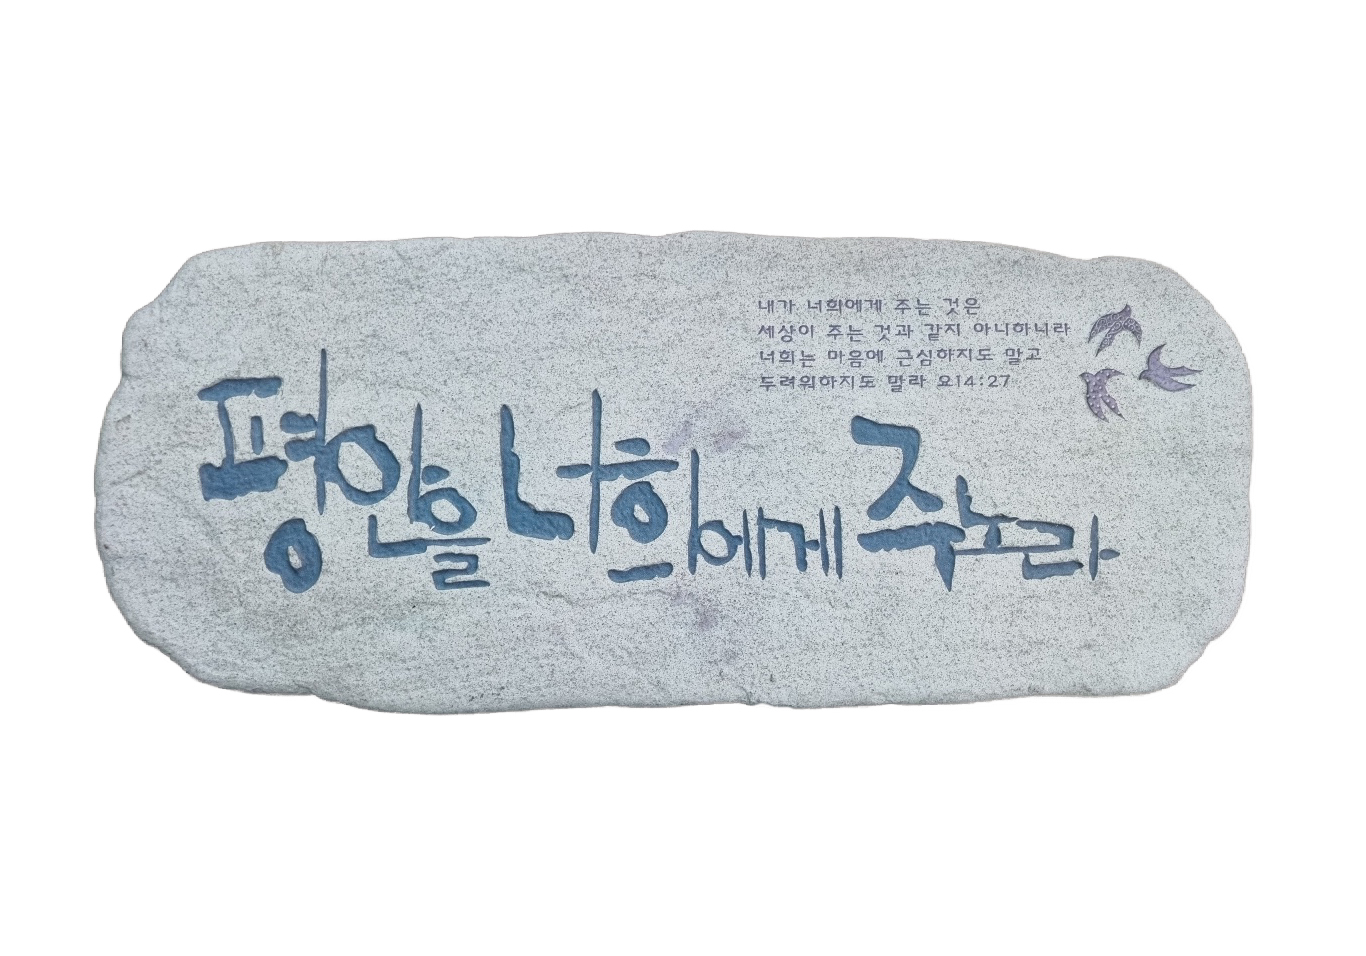 내가 너희에게 주는 것은
세상이 주는 것과 같지 아니하니라
너희는 마음에 근심하지도 말고
두려워하지도 말라 요14:27
평안을 너희에게 주노라